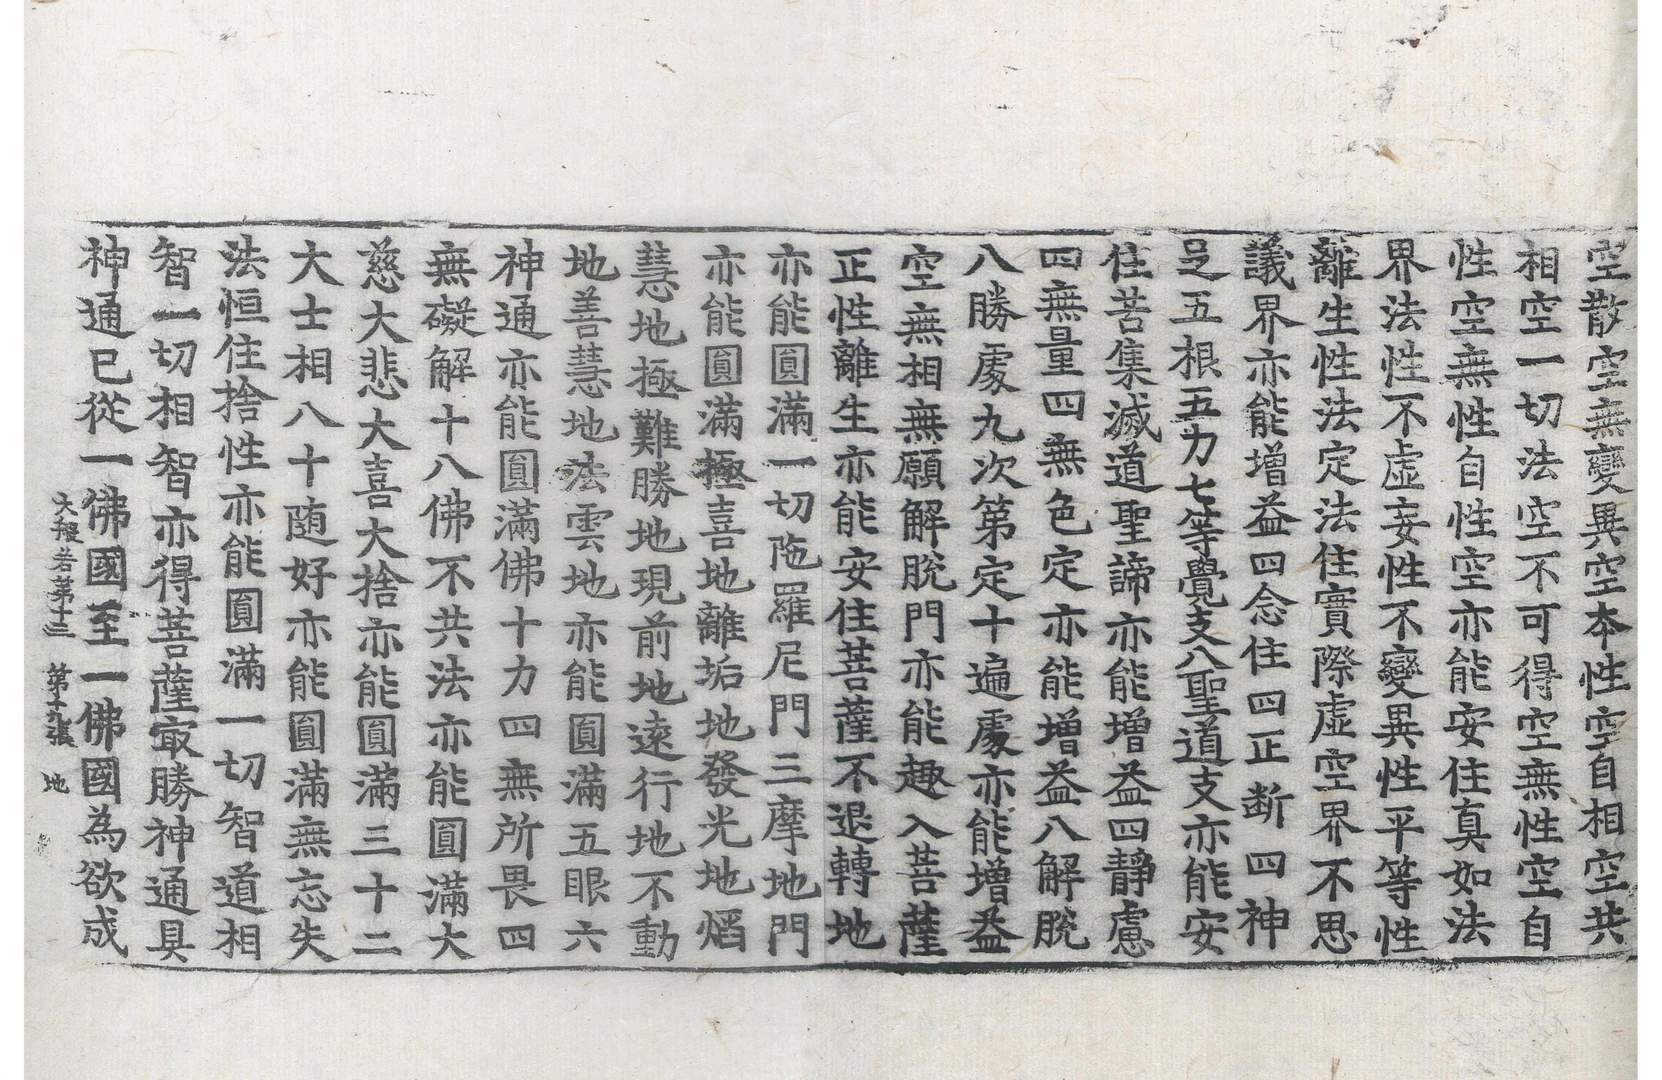 空散空無變異空本性空自相空共
相空一切法空不可得空無性空自
性空無性自性空亦能安住真如法
界法性不虛妄性不變異性平等性
離生性法定法住實際虛空界不思
議界亦能增益四念住四正断四神
足五根五力七等覺支八聖道支亦能安
住苦集滅道聖諦亦能增益四靜慮
四無量四無色定亦能增益八解脫
八勝處九次第定十遍處亦能增益
空無相無願解脫門亦能趣入菩薩
正性離生亦能安住菩薩不退轉地
亦能圎滿一切陁羅尼門三摩地門
亦能圎滿極喜地離垢地發光地焰
慧地極難勝地現前地遠行地不動
地善慧地法雲地亦能圎滿五眼六
神通亦能圎滿佛十力四無所畏四
無礙解十八佛不共法亦能圎滿大
慈大悲大喜大捨亦能圎滿三十二
大士相八十随好亦能圎滿無忘失
法恒住捨性亦能圎滿一切智道相
智一切相智亦得菩薩㝡勝神通具
神通已從一佛國至一佛國為欲成
大般若第十三 第十九張 地